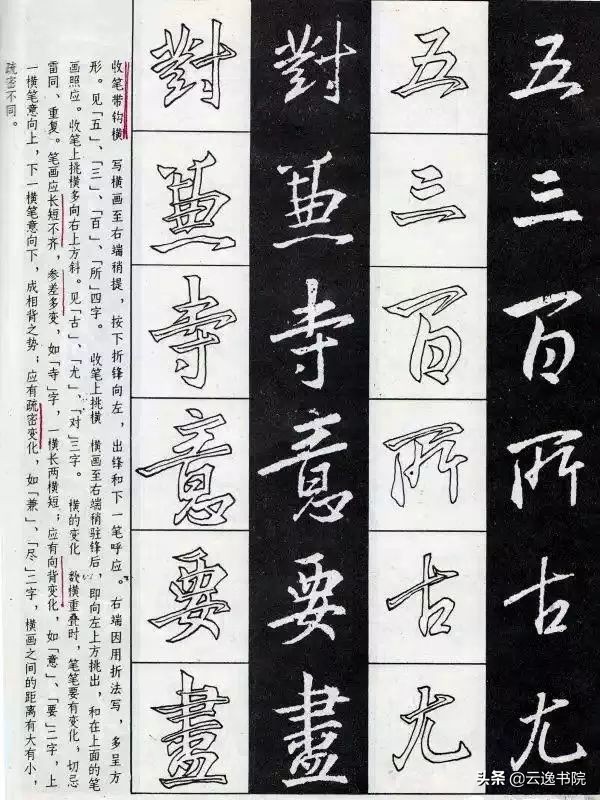 五三百所古尤
五三百所古尤
對兼寺意要盡
對兼寺意要盡
收笔带钩横　写横画至右端稍提，按下折锋向左，出锋和下一笔呼应。右端因用折法写，多呈方
形。见「五」、「三」、「百」、「所」四字。　收笔上挑横　横画至右端稍驻锋后，即向左上方挑出，和在上面的笔
画照应。收笔上挑横多向右上方斜。见「古」、「尤」、「对」三字。　横的变化　数横重叠时，笔笔要有变化，切忌
雷同、重复。笔画应长短不齐，参差多变，如「寺」字，一横长两横短；应有向背变化，如「意」、「要」二字，上
一横笔意向上，下一横笔意向下，成相背之势；应有疏密变化，如「兼」、「尽」二字，横画之间的距离有大有小，
疏密不同。
头条@云逸书院